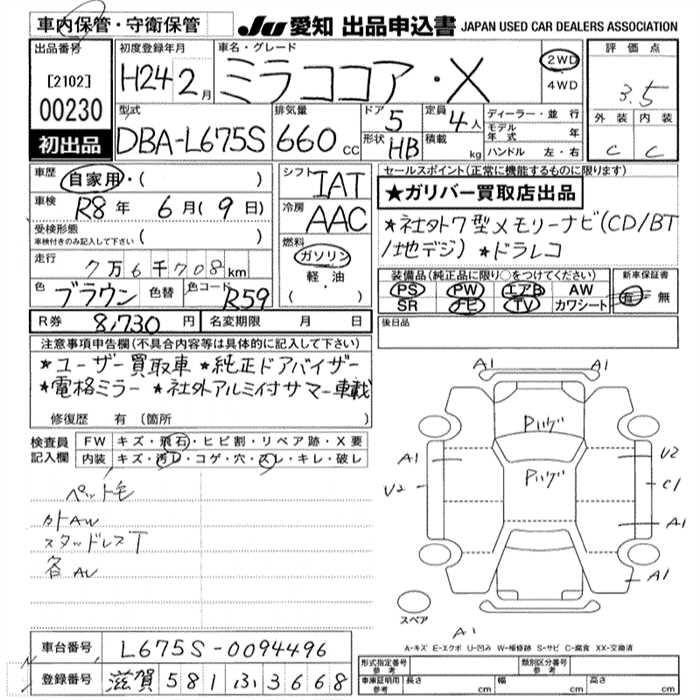 車内保管・守衛保管
JU 愛知 出品申込書 JAPAN USED CAR DEALERS ASSOCIATION
出品番号 初度登録年月 車名・グレード 評価点
[2102] H24 2月 ミラココア・X 2WD 4WD 3.5
00230
初出品
型式 排気量 ドア 5 定員 4人 ディーラー・並行 外装 内装
DBA-L675S 660cc 形状 HB 積載 kg モデル年式 年 C C
ハンドル 左・右
車歴 自家用・( ) シフト IAT セールスポイント(正常に機能するものに限ります)
車検 R8年 6月(9日) 冷房 AAC ★ガリバー買取店出品
受検形態 ( )
車検付きのみ記入して下さい
★社外7型メモリーナビ(CD/BT
/地デジ) ★ドラレコ
走行 7万6千708km 燃料 ガソリン 軽・油 ( )
色 ブラウン 色替 色コード R59
装備品(純正品に限り○をつけてください) 新車保証書
PS PW エアB AW 有・無
SR ナビ TV カワシート
R券 8,730円 名変期限 月 日 後日品
注意事項申告欄(不具合内容等は具体的に記入して下さい)
★ユーザー買取車 ★純正ドアバイザー
★電格ミラー ★社外アルミ付サマー車載
修復歴 有(箇所
検査員 FW キズ・飛石・ヒビ割・リペア跡・X要
記入欄 内装 キズ・汚レ・コゲ・穴・スレ・キレ・破レ
ペット毛
外AW
スタッドレスT
各AU
A1 A1
Pハゲ
A1 Pハゲ U2
U2 C1
A1
A1
スペア
A1
A-キズ E-エクボ U-凹み W-補修跡 S-サビ C-腐食 XX-交換済
車台番号 L675S-0094496
登録番号 滋賀 581 ふ 3668
形式指定番号 参考 類別区分番号 参考
車庫証明用 参考 長さ cm 幅 cm 高さ cm